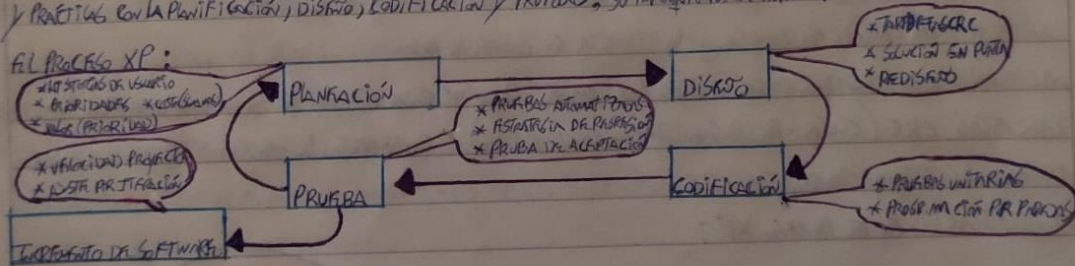 Y PRÁCTICAS CON LA PLANIFICACIÓN, DISEÑO, CODIFICACIÓN Y PRUEBAS,
EL PROCESO XP:
* HISTORIAS DE USUARIO
* PRIORIDADES *
* VALOR (PRIORIDAD)
PLANEACIÓN
DISEÑO
* TARJETAS CRC
* SOLUCIÓN EN PUNTA
* REDISEÑO
* PRUEBAS AUTOMATIZADAS
* ESTRATEGIA DE REGRESIÓN
* PRUEBA DE ACEPTACIÓN
* VELOCIDAD PROYECTO
* AJUSTE POR ITERACIÓN
PRUEBA
CODIFICACIÓN
* PRUEBAS UNITARIAS
* PROGRAMACIÓN POR PAREJAS
INCREMENTO DE SOFTWARE